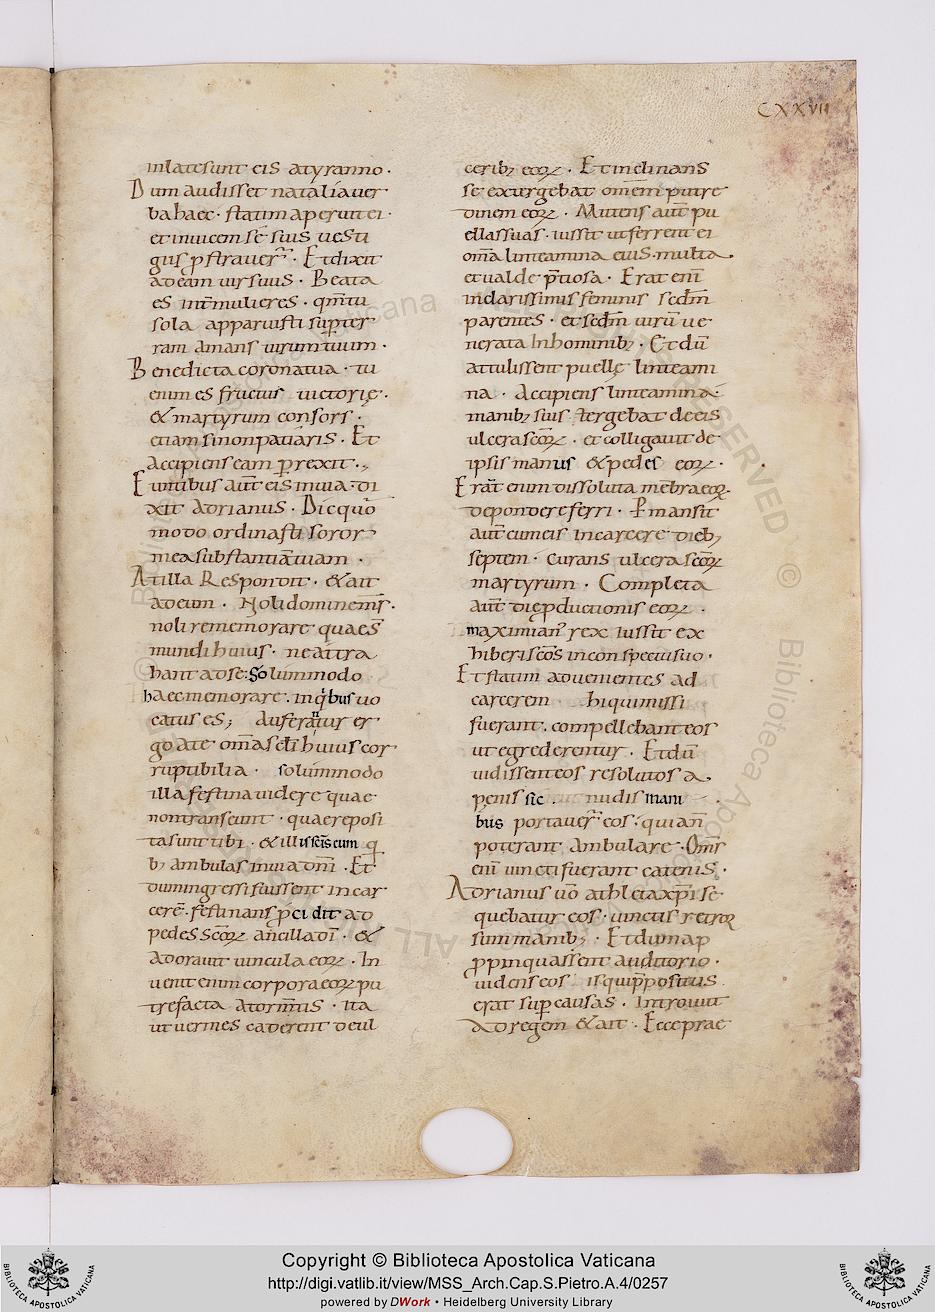 CXXVII
inlate sunt eis a tyranno ·
Dum audisset natalia uer
ba haec · statim aperuit ei ·
et inuicem se suis uesti
gus ꝓstrauer̄ · Et dixit
ad eam uir suus · Beata
es int̄ mulieres · qm̄ tu
sola apparuisti sup̄ ter
ram amans uirum tuum ·
Benedicta coronatua · tu
enim es fructus uictorię ·
& martyrum consors ·
etiam si non patiaris · Et
accipiens eam p̄rexit ·,
Euntibus aut̄ eis in uia · di
xit adrianus · Dic quō
modo ordinasti soror
mea substantiā tuam ·
At illa Respondit · & ait
ad eum · Noli domine m̄s ·
noli rememorare quae s̄
mundi huius · ne attra
hant ad se: Solummodo
haec memorare · in qͥbus uo
catus es; auferantur er
go a te om̄a sc̄li huius cor
ruptibilia · solummodo
illa festina uidere quae
non transeunt · quae reposi
ta sunt tibi · & illis sc̄is cum q
bꝫ ambulas in uia dn̄i · Et
dum ingressi fuissent in car
cerē · festinans p̄cidit ad
pedes sc̄orꝝ ancilla dī · &
adorauit uincula eorꝝ · In
uenit enim corpora eorꝝ pu
trefacta a torm̄tis · ita
ut uermes caderent de ul
ceribꝫ eorꝝ · Et inclinans
se extergebat om̄em putre
dinem eorꝝ · Mittens aut̄ pu
ellas suas · iussit ut ferrent ei
om̄a linteamina eius · multa
et ualde p̄tiosa · Erat enī
in clarissimis feminis sedm̄
parentes · et sedm̄ uirū ue
nerata In hominibꝫ · Et dū
attulissent puellę linteami
na · Accipiens linteamina
manibꝫ suis tergebat de eis
ulcera sc̄orꝝ · et colligauit de
ipsis manus & pedes eorꝝ ·
Erat enim dissoluta mēbra eorꝝ
de pondere ferri · P̄mansit
aut̄ cum eis in carcere diebꝫ
septem · curans ulcera sc̄orꝝ
martyrum · Completa
aut̄ die ꝓductionis eorꝝ ·
maximian' rex iussit ex
hiberi sc̄os in conspectu suo ·
Et statim aduenientes ad
carcerem hi qui missi
fuerant · compellebant eos
ut egrederentur · Et dū
uidissent eos resolutos a
penis sic · nudis mani
bus portauer̄ eos · quia n̄
poterant ambulare · Om̄s
enī uincti fuerant catenis ·
Adrianus uō athleta xp̄i se
quebatur eos · uinctus retror
sum manibꝫ · Et dum ap
ꝓpinquassent auditorio ·
uidens eos is qui p̄positus
erat sup̄ causas · Introiuit
ad regem & ait · Ecce prae
Copyright © Biblioteca Apostolica Vaticana
http://digi.vatlib.it/view/MSS_Arch.Cap.S.Pietro.A.4/0257
powered by DWork • Heidelberg University Library